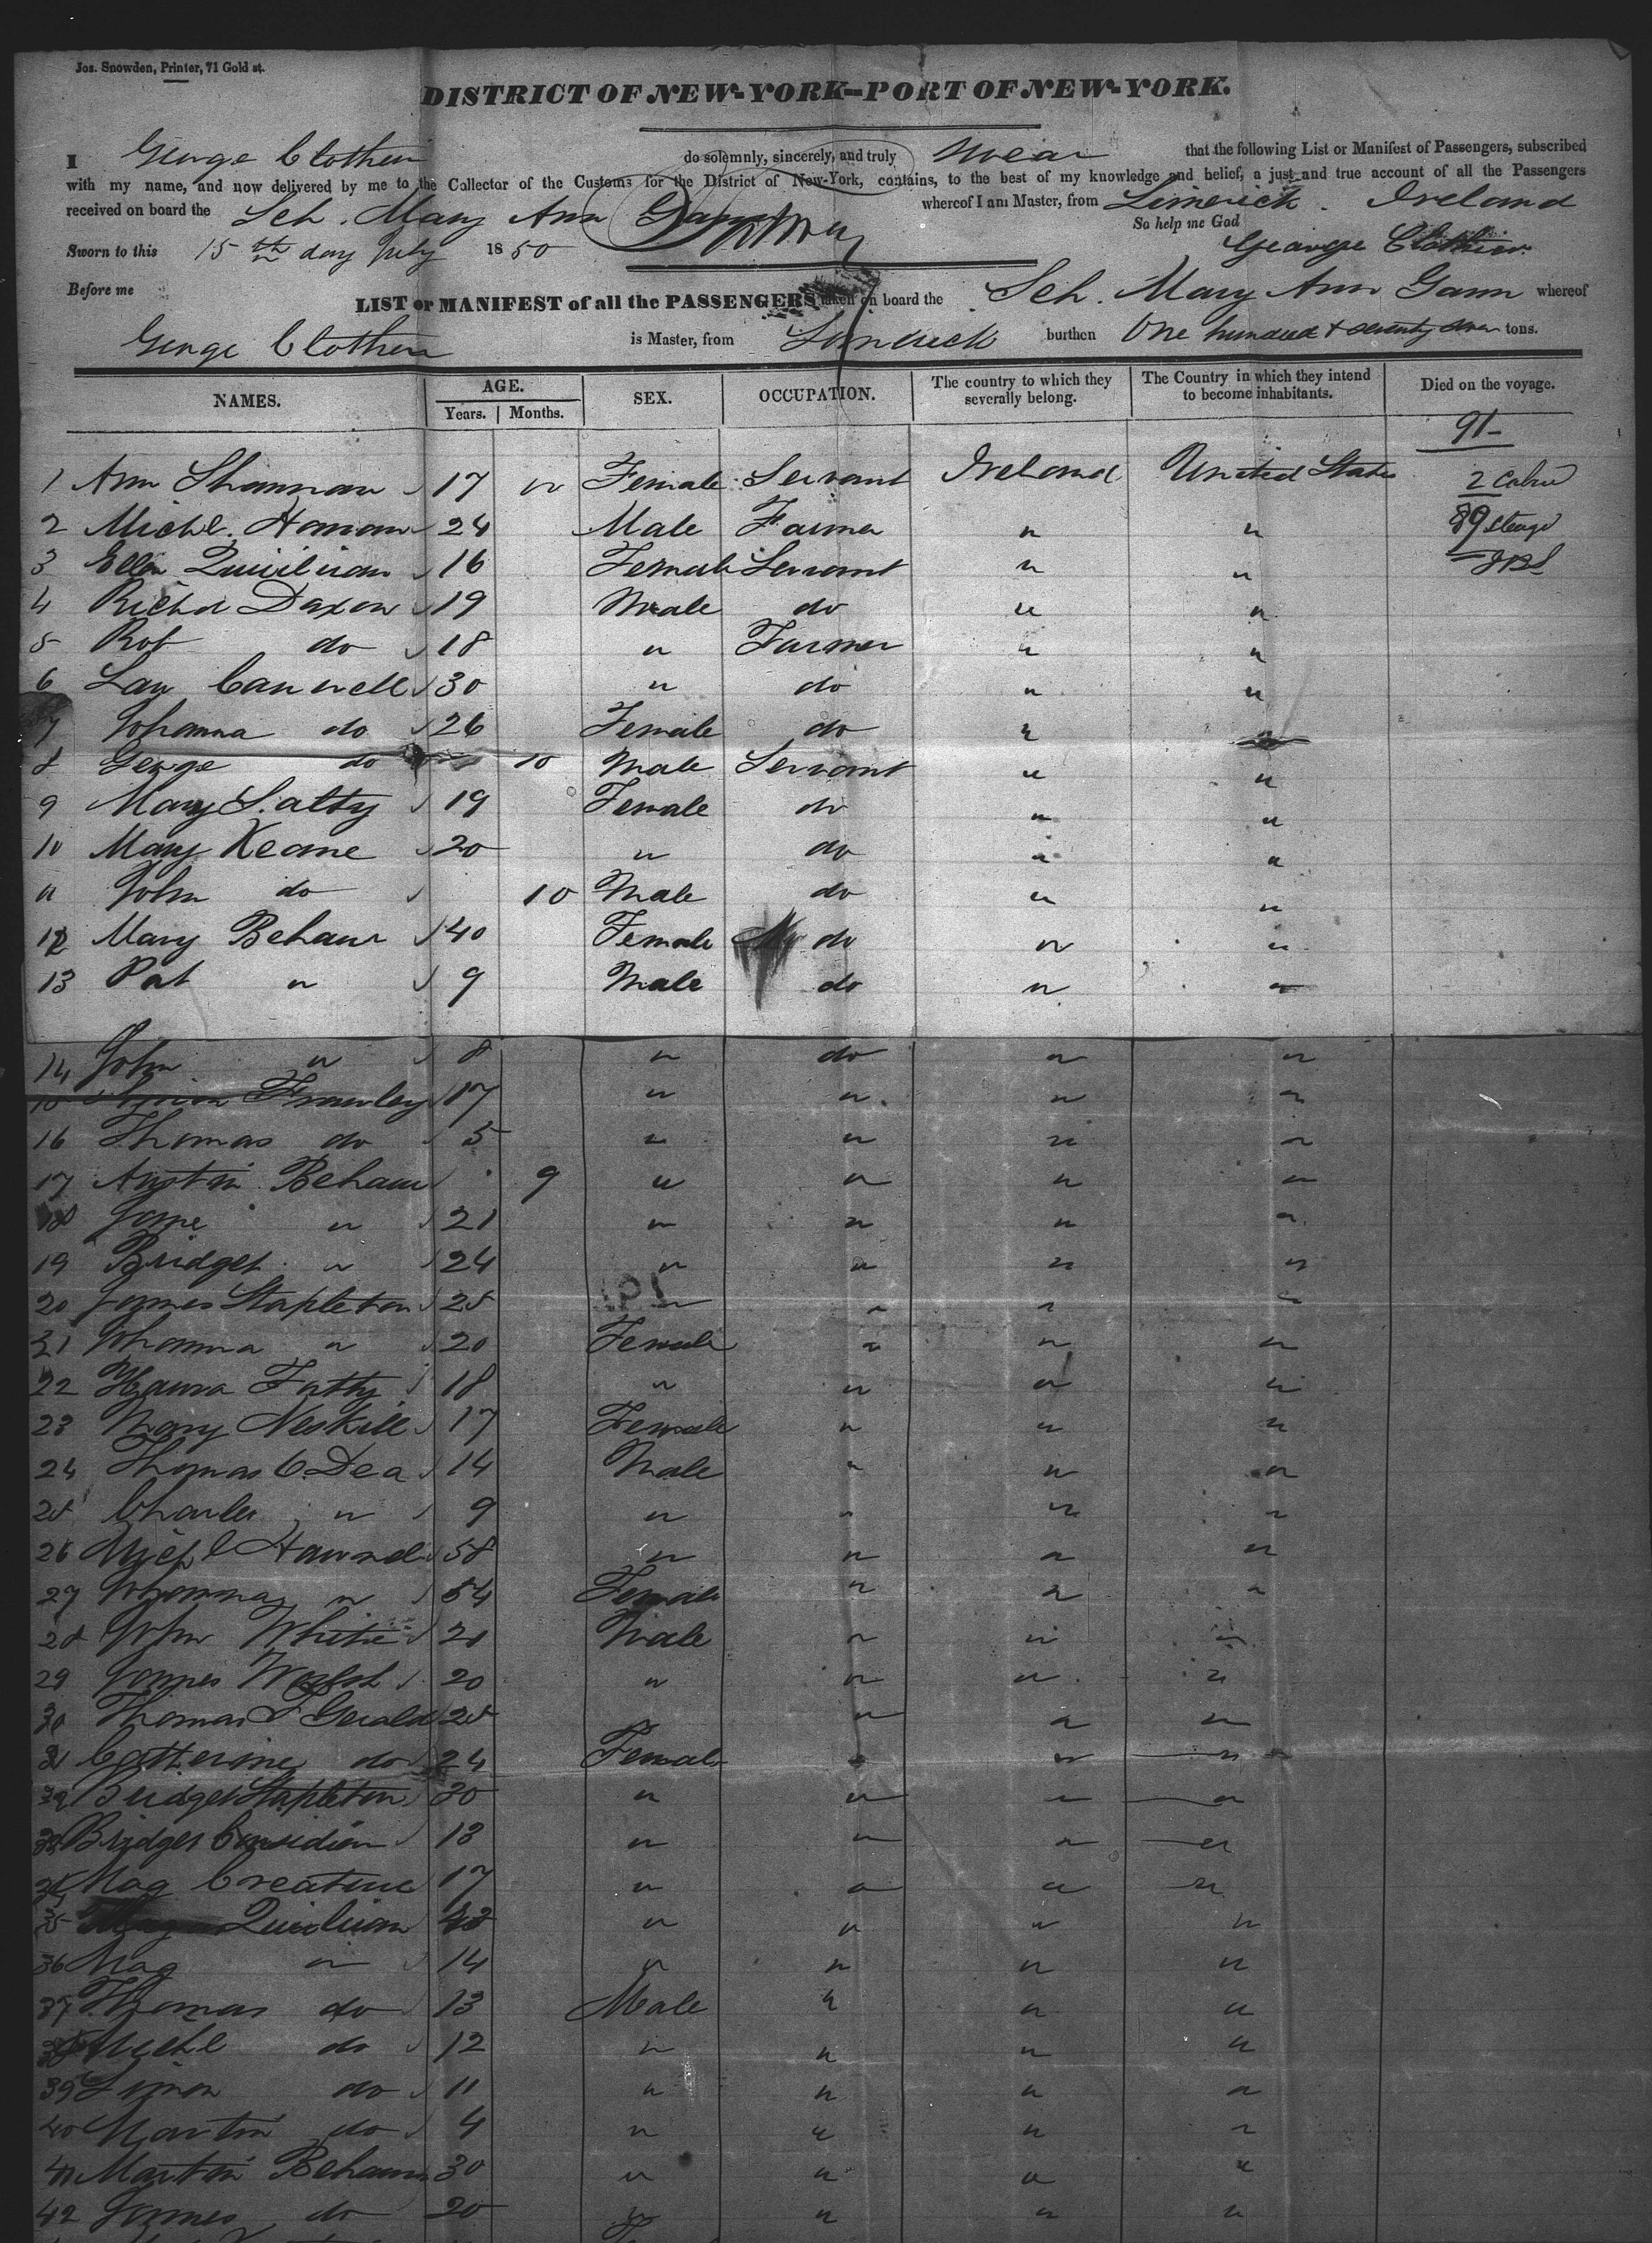 Jos. Snowden, Printer, 71 Gold st.
DISTRICT OF NEW-YORK—PORT OF NEW-YORK.
I George Clothier do solemnly, sincerely, and truly swear that the following List or Manifest of Passengers, subscribed
with my name, and now delivered by me to the Collector of the Customs for the District of New-York, contains, to the best of my knowledge and belief, a just and true account of all the Passengers
received on board the Sch. Mary Ann whereof I am Master, from Limerick. Ireland
So help me God
Sworn to this 15th day July 1850 George Clothier
Before me
LIST or MANIFEST of all the PASSENGERS taken on board the Sch. Mary Ann Gann whereof
George Clothier is Master, from Limerick burthen One hundred & seventy tons.
NAMES. AGE. Years. Months. SEX. OCCUPATION. The country to which they severally belong. The Country in which they intend to become inhabitants. Died on the voyage.
91-
1 Ann Shannan 17 " Female Servant Ireland United States 2 Cabin
2 Michl. Honan 24 Male Farmer " " 89 steage
3 Ellen Quilivan 16 Female Servant " "
4 Richd Daxon 19 Male do " "
5 Rob do 18 " Farmer " "
6 Law Canwell 30 " do " "
7 Johanna do 26 Female do " "
8 George do 10 Male Servant " "
9 Mary 19 Female do " "
10 Mary Keane 20 " do " "
11 John do 10 Male do " "
12 Mary Behane 40 Female do " "
13 Pat " 9 Male do " "
14 John " 8 " do " "
15 Frawley 17 " " " "
16 Thomas do 5 " " " "
17 Austin Behane 9 " " " "
18 Jane " 21 " " " "
19 Bridget " 24 " " " "
20 James Stapleton 25 " " " "
21 Johanna " 20 Female " " "
22 18 " " " "
23 Mary 17 Female " " "
24 Thomas O.Dea 14 Male " " "
25 Charles " 9 " " " "
26 Michl 58 " " " "
27 Johanna " 54 Female " " "
28 John White 20 Male " " "
29 James Walsh 20 " " " "
30 Thomas F Gerald 25 " " "
31 Catherine do 24 Female " " "
32 Bridget Stapleton 20 " " " "
33 Bridget 18 " " " "
34 Mag 17 " " " "
35 Quilivan " " " "
36 Mag " 14 " " " "
37 Thomas do 13 Male " " "
38 Michl do 12 " " " "
39 Simon do 11 " " " "
40 Martin do 4 " " " "
41 Martin Behane 30 " " " "
42 James do 20 " " " "